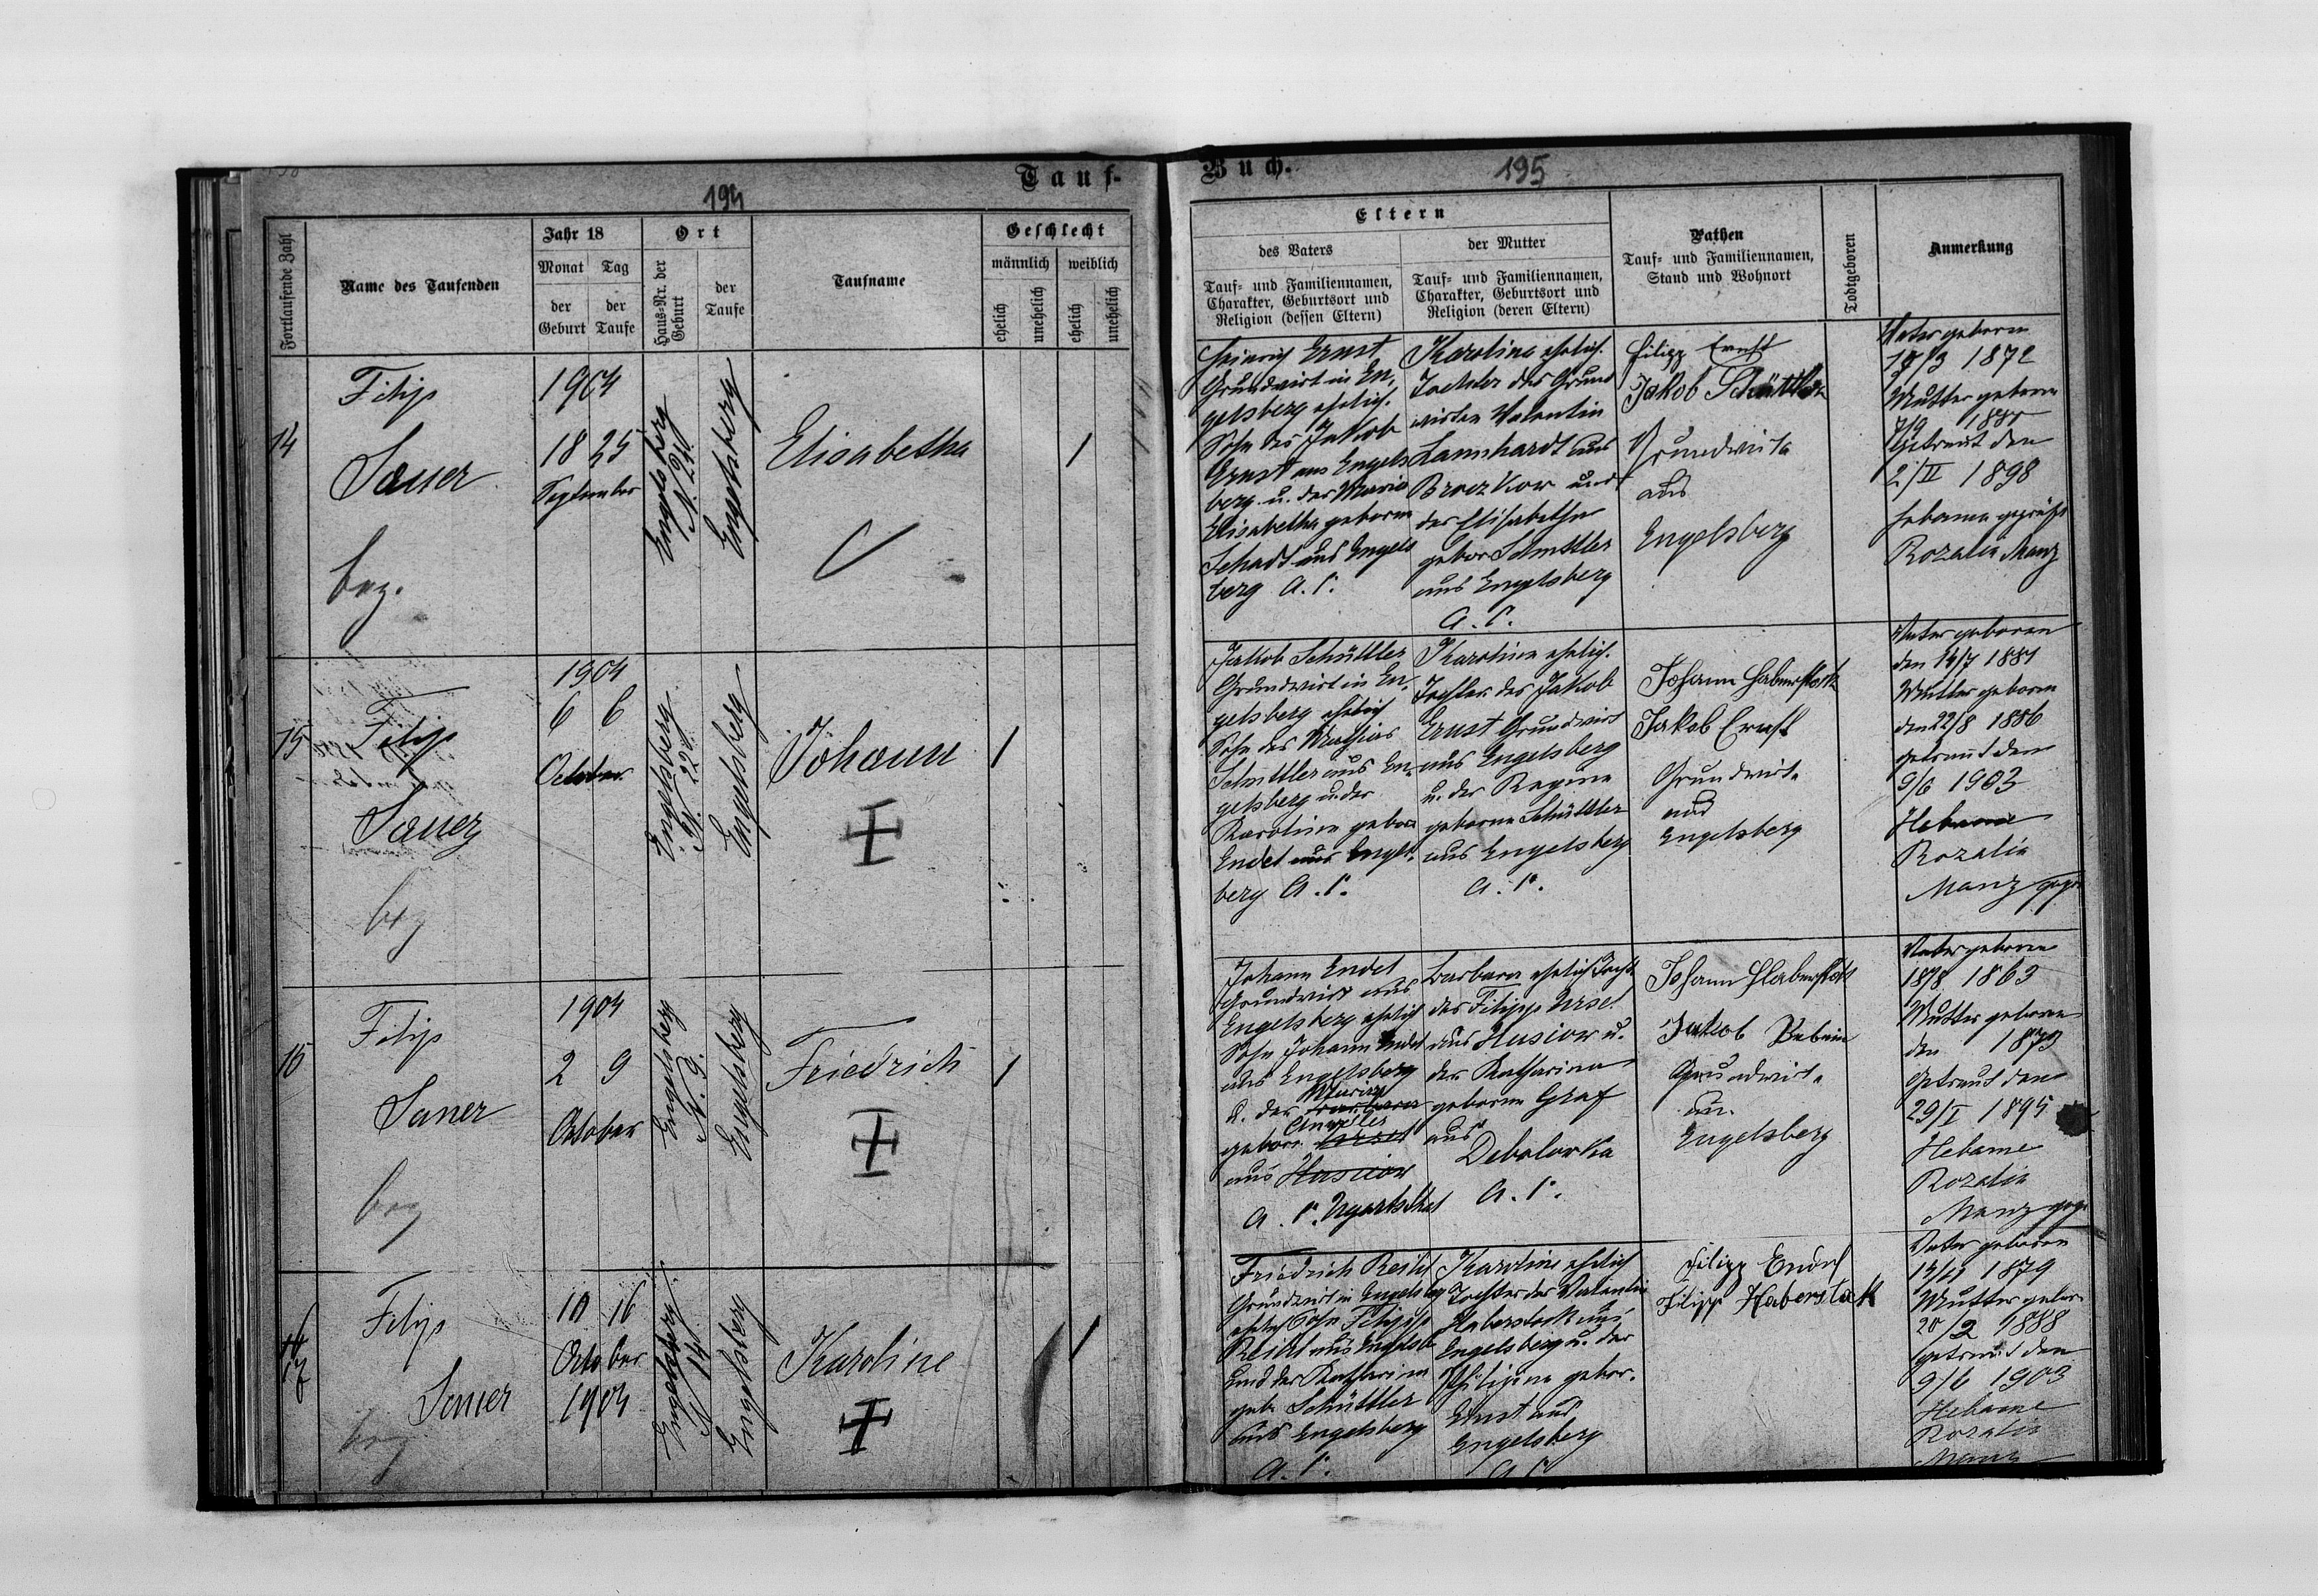 Tauf-
194
Fortlaufende Zahl
Name des Taufenden
Jahr 18
Monat
Tag
der Geburt
der Taufe
Ort
Haus-Nr. der Geburt
der Taufe
Taufname
Geschlecht
männlich
weiblich
ehelich
unehelich
ehelich
unehelich
14
Filip
Sauer
bez.
1904
18 25
September
Engelsberg
N. 21.
Engelsberg
Elisabetha
1
15
Filip
Sauer
bez
1904
6 6
October
Engelsberg
N. 22
Engelsberg
Johann
1
16
Filip
Sauer
bez
1904
2 9
October
Engelsberg
N. 9.
Engelsberg
Friedrich
1
17
Filip
Sauer
bez
10 16
October
1904
Engelsberg
N 14
Engelsberg
Karoline
1
Buch.
195
Eltern
des Vaters
Tauf- und Familiennamen,
Charakter, Geburtsort und
Religion (dessen Eltern)
der Mutter
Tauf- und Familiennamen,
Charakter, Geburtsort und
Religion (deren Eltern)
Pathen
Tauf- und Familiennamen,
Stand und Wohnort
Todtgeboren
Anmerkung
Heinrich Ernst
Grundwirt in En-
gelsberg ehelich.
Sohn des Jakob
Ernst aus Engels
berg u. der Maria
Elisabetha geboren
Schadt aus Engels
berg A. C.
Karolina ehelich.
Tochter des Grund
wirten Valentin
Lannhardt aus
Broczkow und
der Elisabetha
gebor Schuttler
aus Engelsberg
A. C.
Filipp Ernst
Jakob Schüttler
Grundwirte
aus
Engelsberg
Vater geboren
1872
Mutter geboren
7/9
Getraut den
2/II 1898
Hebame geprüft
Rozalia Manz
Jakob Schüttler
Grundwirt in En-
gelsberg ehelich
Sohn des Mathias
Schuttler aus En-
gelsberg u. der
Karolina gebor
Endel aus Engels-
berg A. C.
Karolina ehelich.
Tochter des Jakob
Ernst Grundwirt
aus Engelsberg
u. der Regina
geborne Schüttler
aus Engelsberg
A. C.
Johann Haberstock
Jakob Ernst
Grundwirte
aus
Engelsberg
Vater geboren
den 14/7 1881
Mutter geboren
den 22/8 1886
getraut den
9/6 1903
Hebame
Rozalia
Manz gepr
Johann Endel
Grundwirt aus
Engelsberg ehelich
Sohn Johann Endel
aus Engelsberg
Maria
u. der
gebor.
aus Husiow
A. C. Ugartsthal
Barbara ehelich Tocht
des Filipp Ursel
aus Husiow u.
der Katharina
geborne Graf
aus
Debolowka
A. C.
Johann Haberstock
Jakob
Grundwirte
Engelsberg
Vater geboren
18/8 1863
Mutter geboren
den 1873
Getraut den
29/I 1895
Hebame
Rozalia
Manz gepr
Friedrich Reichl
Grundwirt in Engelsberg
ehelich Sohn Filipp
Reichl aus Engelsb
und der Katharina
geb. Schüttler
aus Engelsberg
A. C.
Karoline ehelich
Tochter der Valentin
Haberstock aus
Engelsberg u. der
Philipina gebor.
Ernst aus
Engelsberg
A C
Filipp Endel
Filipp Haberstock
Vater geboren
1879
Mutter gebor
20/2 1888
getraut den
9/6 1903
Hebame
Rozalia
Manz